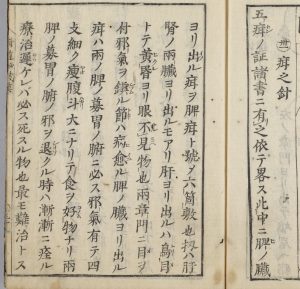 疳之針
五疳ノ証諸書ニ有之依テ畧ス此中ニ脾ノ臓
ヨリ出ル疳ヲ脾疳ト號ヲ六箇敷也扨ハ肝
腎ノ兩臓ヨリ出ルモアリ肝ヨリ出ルハ鳥目
トテ黄昏ヨリ眼不見物也兩章門ニ目ヲ
付邪氣ヲ鍼ル節ハ病愈ル脾ノ臓ヨリ出ル
疳ハ兩ノ脾ノ募胃ノ腑ニ必ス邪氣有テ四
支細ク瘦腹斗大ニナリテ食ヲ好物ナリ兩
脾ノ募胃ノ腑ノ邪ヲ退クル時ハ漸漸ニ痊ル
療治遲ケレバ必ス死スル物也最モ難治トス